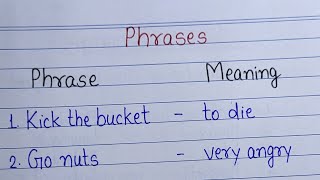 Phrases
Phrase Meaning
1. Kick the bucket - to die
2. Go nuts - very angry